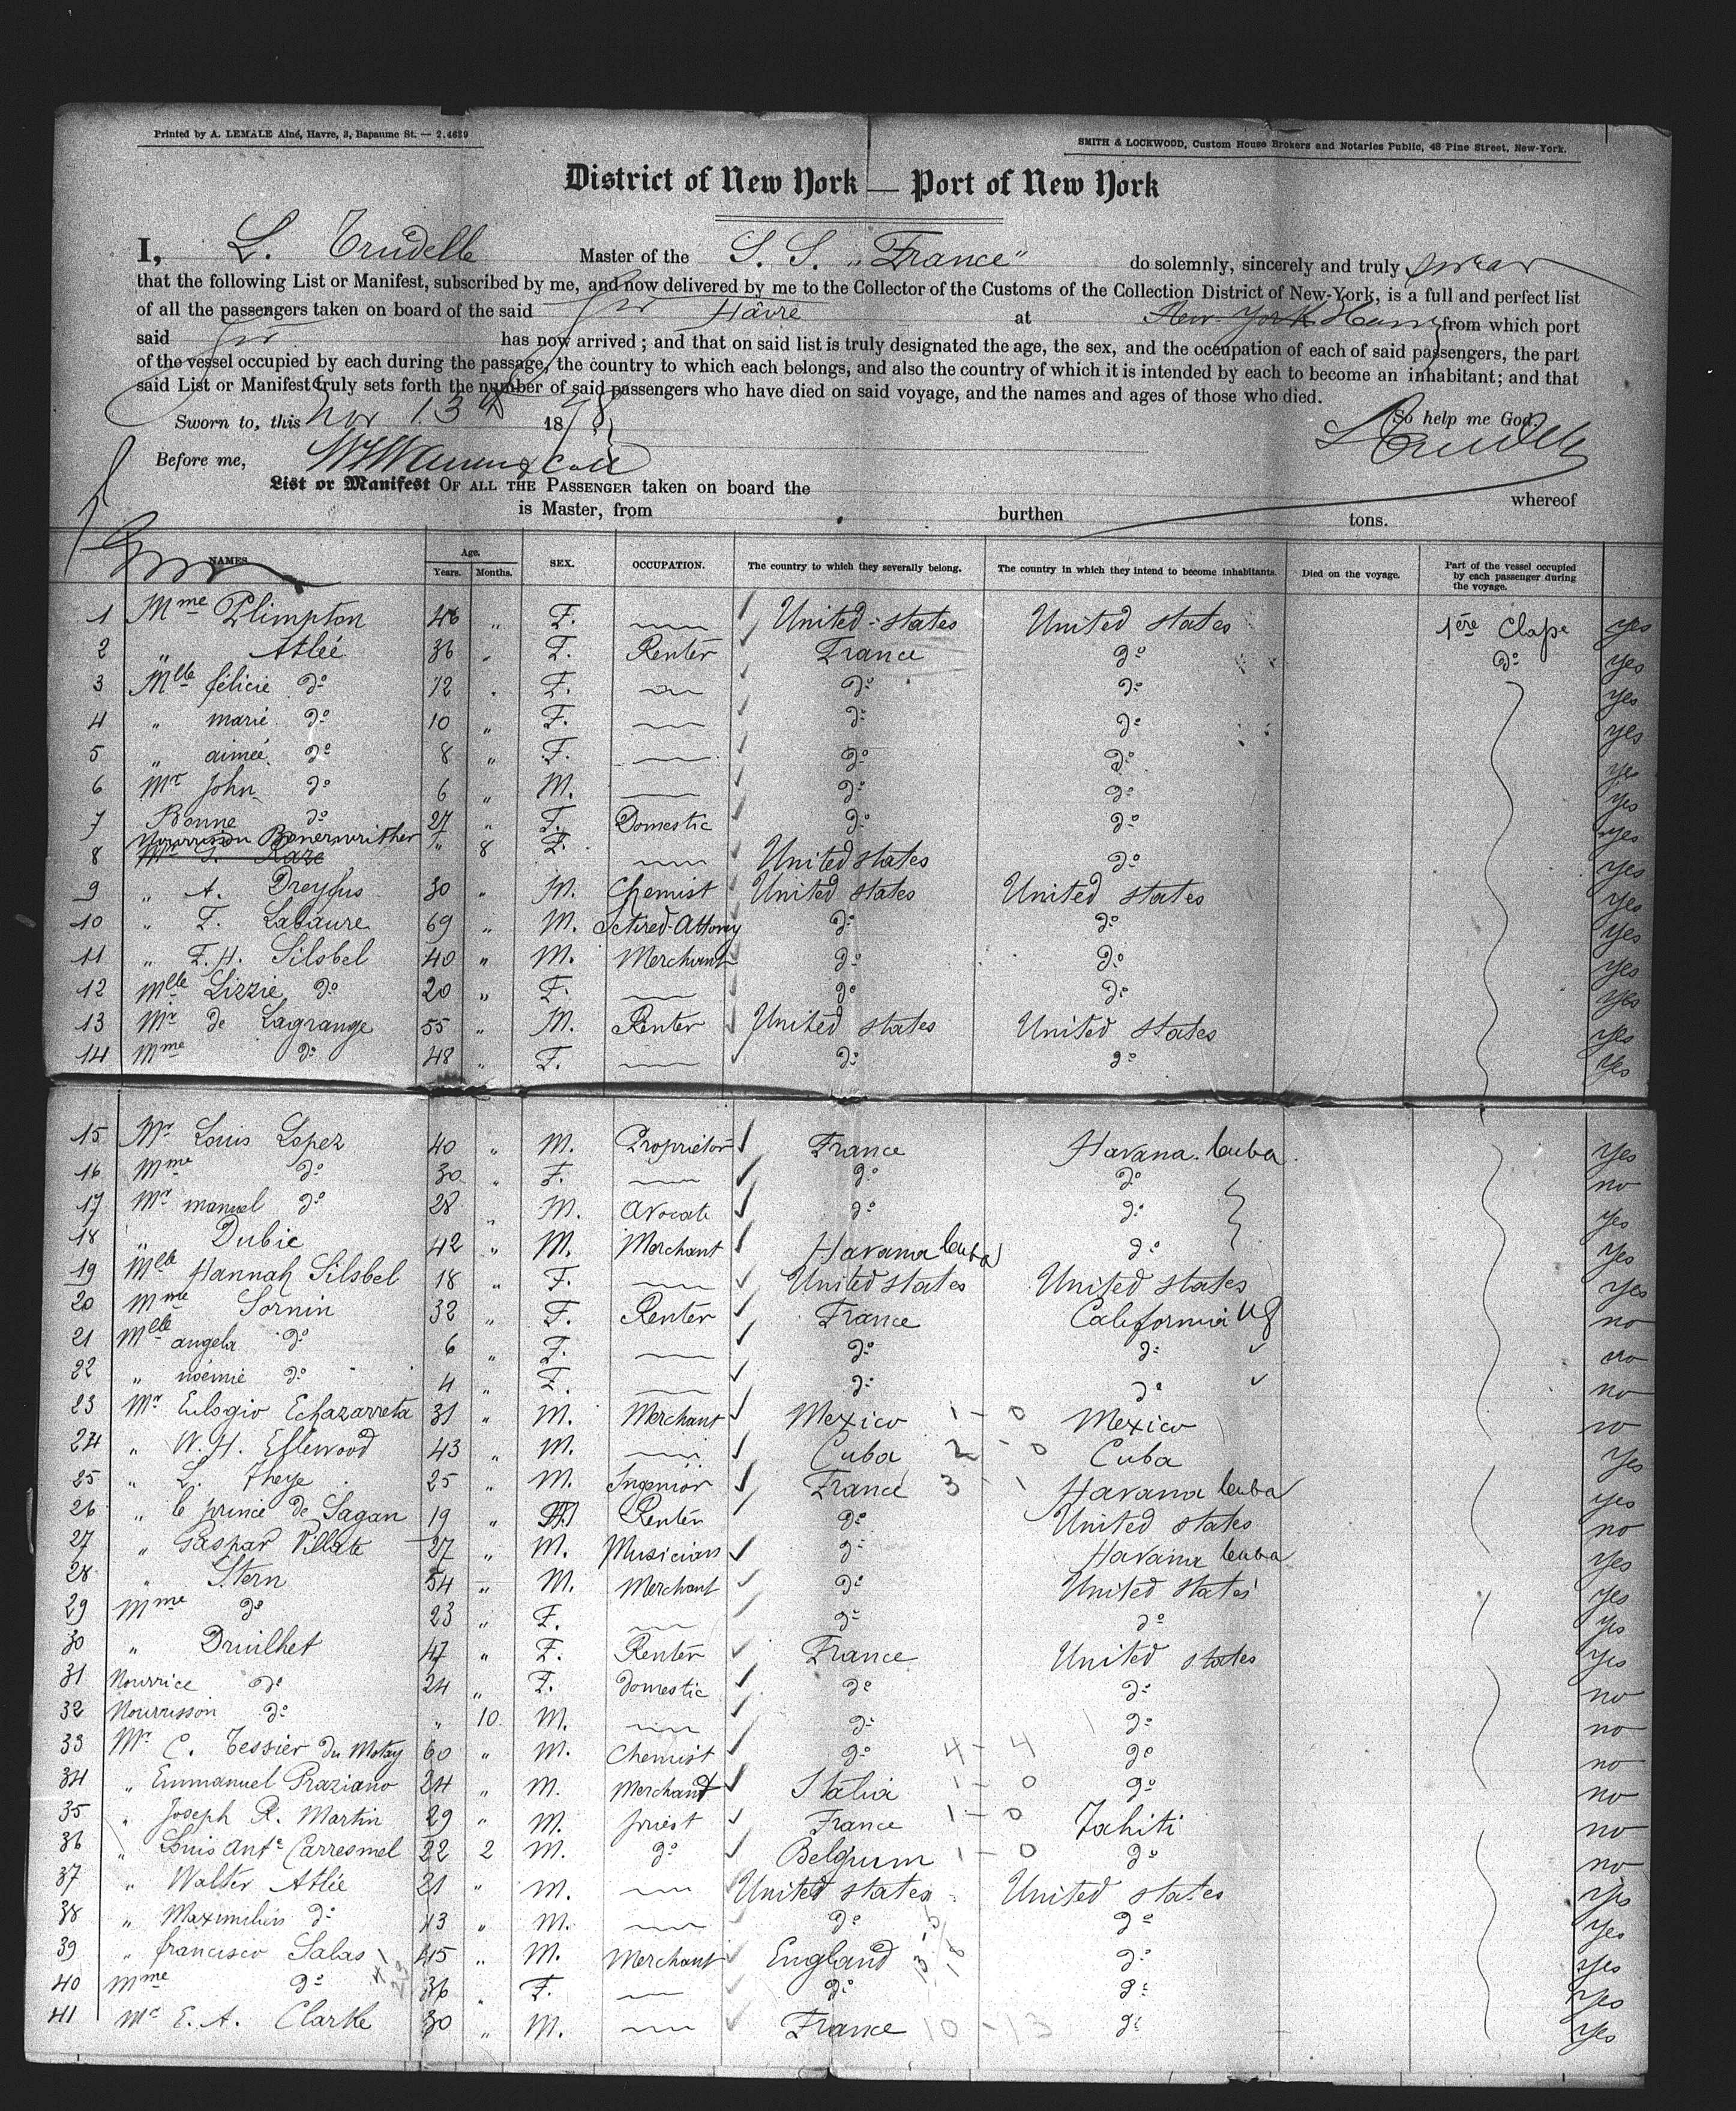 Printed by A. LEMALE Aîné, Havre, 3, Bapaume St. — 2.4629
SMITH & LOCKWOOD, Custom House Brokers and Notaries Public, 48 Pine Street, New-York.
District of New York — Port of New York
I, L. Trudelle Master of the S. S. "France" do solemnly, sincerely and truly swear
that the following List or Manifest, subscribed by me, and now delivered by me to the Collector of the Customs of the Collection District of New-York, is a full and perfect list
of all the passengers taken on board of the said Havre at New York from which port
said has now arrived ; and that on said list is truly designated the age, the sex, and the occupation of each of said passengers, the part
of the vessel occupied by each during the passage, the country to which each belongs, and also the country of which it is intended by each to become an inhabitant; and that
said List or Manifest truly sets forth the number of said passengers who have died on said voyage, and the names and ages of those who died.
Sworn to, this Nov 13th 1878 So help me God.
L Trudelle
Before me,
List or Manifest OF ALL THE PASSENGER taken on board the whereof
is Master, from burthen tons.
NAMES. Age. Years. Months. SEX. OCCUPATION. The country to which they severally belong. The country in which they intend to become inhabitants. Died on the voyage. Part of the vessel occupied by each passenger during the voyage.
1 Mme Plimpton 46 " F. United-states United states 1ère Classe yes
2 " Atlée 36 " F. Renter France do do yes
3 Mlle félicie do 12 " F. do do yes
4 " marie do 10 " F. do do yes
5 " aimée do 8 " F. do do yes
6 Mr John do 6 " M. do do yes
7 Bonne do 27 " F. Domestic do do yes
8 Nourrisson " 8 F. United states do yes
9 " A. Dreyfus 30 " M. Chemist United states United states yes
10 " F. Labaure 69 " M. Retired-Attorny do do yes
11 " F. H. Silsbel 40 " M. Merchant do do yes
12 Mlle Lizzie do 20 " F. do do yes
13 Mr de Lagrange 55 " M. Renter United states United states yes
14 Mme do 48 " F. do do yes
15 Mr Louis Lopez 40 " M. Proprietor France Havana Cuba yes
16 Mme do 30 " F. do do no
17 Mr manuel do 28 " M. avocate do do yes
18 " Dubie 42 " M. Merchant Havana Cuba do yes
19 Mlle Hannah Silsbel 18 " F. United states United states yes
20 Mme Sornin 32 " F. Renter France California US no
21 Mlle angela do 6 " F. do do no
22 " noémie do 4 " F. do do no
23 Mr Eulogio Echazarreta 31 " M. Merchant Mexico 1 - 0 Mexico no
24 " W. H. Ellewood 43 " M. Cuba 2 - 0 Cuba yes
25 " L. Theye 25 " M. Ingenior France 3 - 1 Havana Cuba yes
26 " le prince de Sagan 19 " M Renter do United states no
27 " Gaspar Villate 27 " M. Musician do Havana Cuba yes
28 " Stern 54 " M. Merchant do United states yes
29 Mme do 23 " F. do do yes
30 " Druilhet 47 " F. Renter France United states yes
31 Nourrice do 24 " F. domestic do do no
32 Nourrisson do " 10 M. do do no
33 Mr C. Tessier du Motay 60 " M. Chemist do 4 - 4 do no
34 " Emmanuel Praziano 24 " M. Merchant Italia 1 - 0 do no
35 " Joseph R. Martin 29 " M. priest France 1 - 0 Tahiti no
36 " Louis Ante Carresmel 22 2 M. do Belgium 1 - 0 do no
37 " Walter Atlée 21 " M. United states United states yes
38 " Maximilien do 13 " M. do do yes
39 " francisco Salas 45 " M. Merchant England do yes
40 Mme do 36 " F. do do yes
41 Mr E. A. Clarke 30 " M. France 10 - 13 do yes